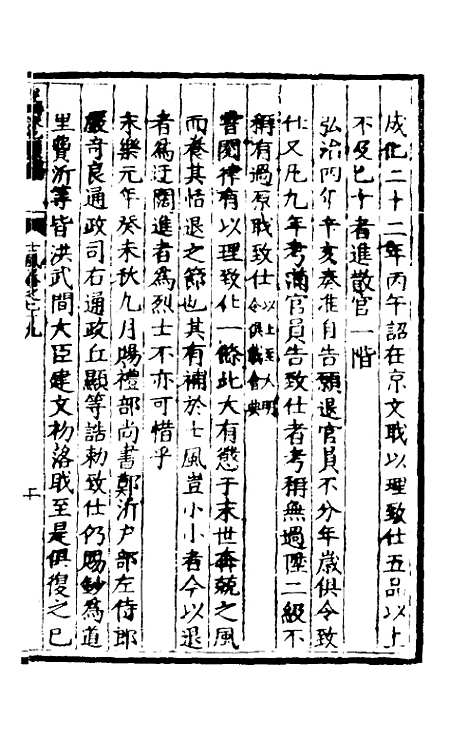 成化二十二年丙午詔在京文職以理致仕五品以上
不及七十者進散官一階
弘治四年辛亥奏准自告願退官員不分年歲俱令致
仕又凡九年考滿官員告致仕者考稱無過陞二級不
稱有過原職致仕以上至大明令俱載會典
嘗閱律有以理致仕一條此大有懲于末世奔競之風
而養其恬退之節也其有補於士風豈小小者今以退
者為迂闊進者為烈士不亦可惜乎
永樂元年癸未秋九月賜禮部尚書鄭沂户部左侍郎
嚴奇良通政司右通政丘顯等誥勅致仕仍賜鈔為道
里費沂等皆洪武間大臣建文初落職至是俱復之已